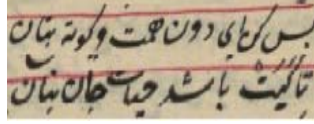 بس کن ای دون همت و کوته بنان
تاکیت باشد حیات جان بنان